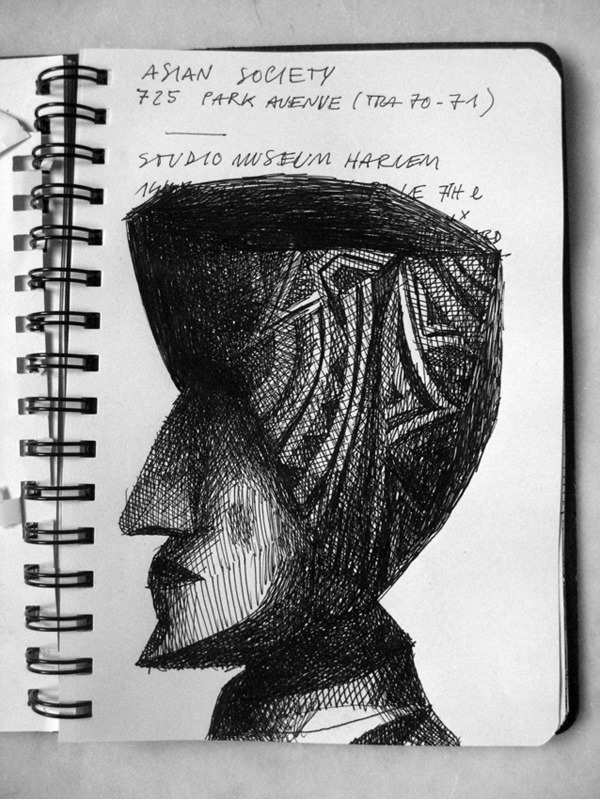 ASIAN SOCIETY
725 PARK AVENUE (TRA 70-71)
STUDIO MUSEUM HARLEM
7TH e